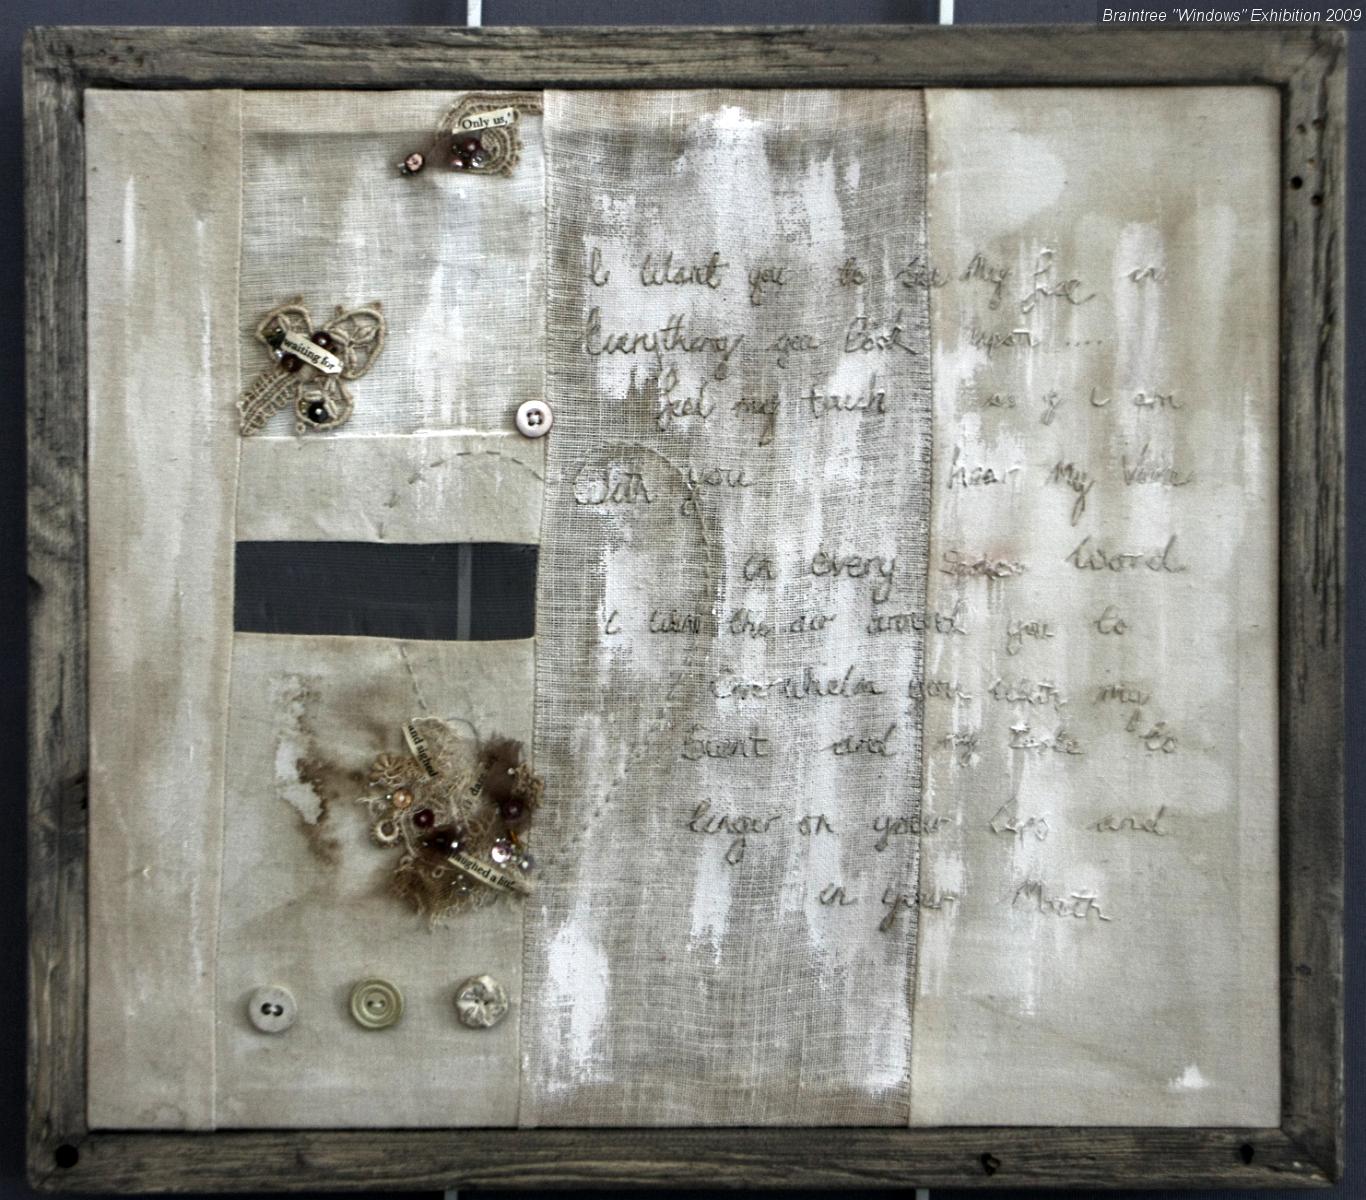 Braintree "Windows" Exhibition 2009
Only us,'
waiting for
I Want you to See My face in
Everything you Look upon ....
feel my touch as if i am
With you hear My Voice
in every word
i want the air around you to
Overwhelm you with my
Scent and my taste to
linger on your Lips and
in your Mouth
and sighed
laughed a